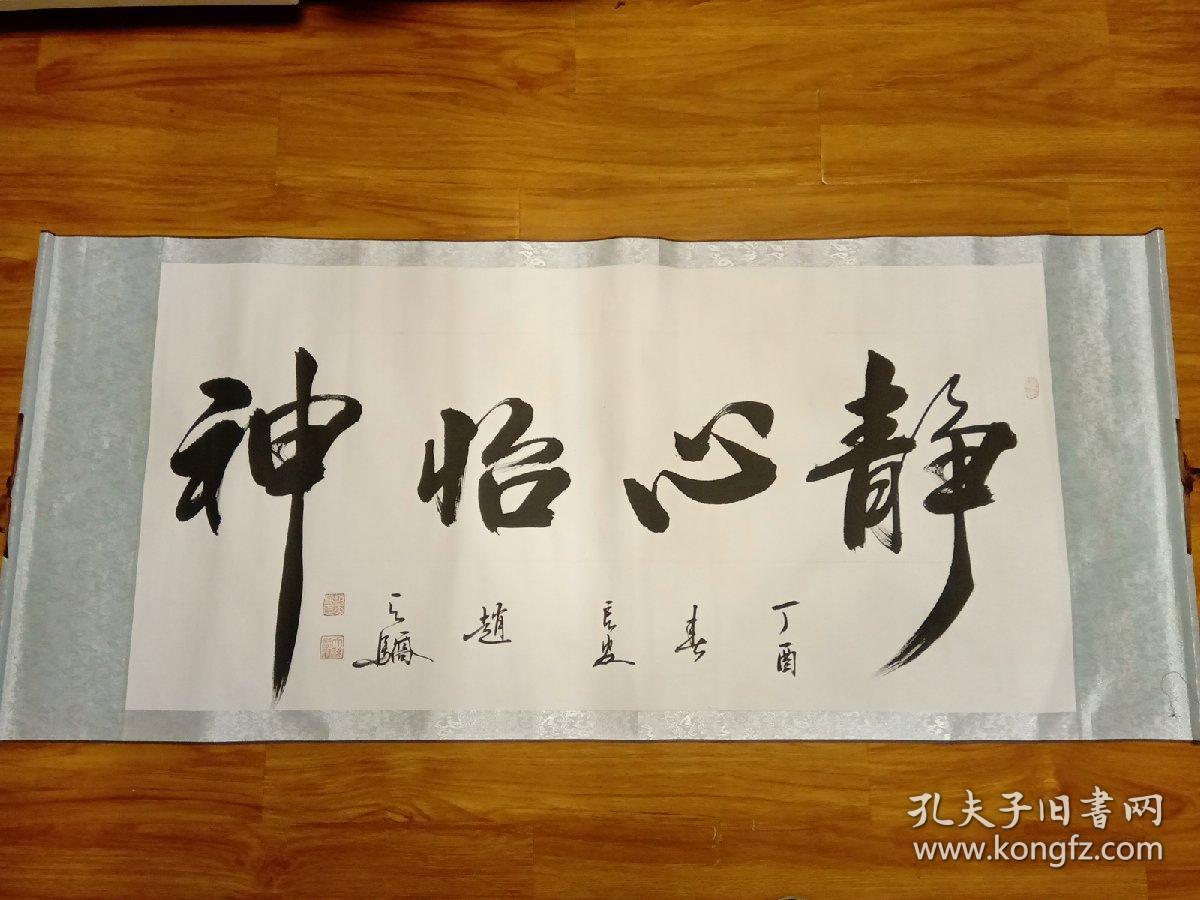 靜心怡神
丁酉
春
趙
孔夫子旧書网
www.kongfz.com